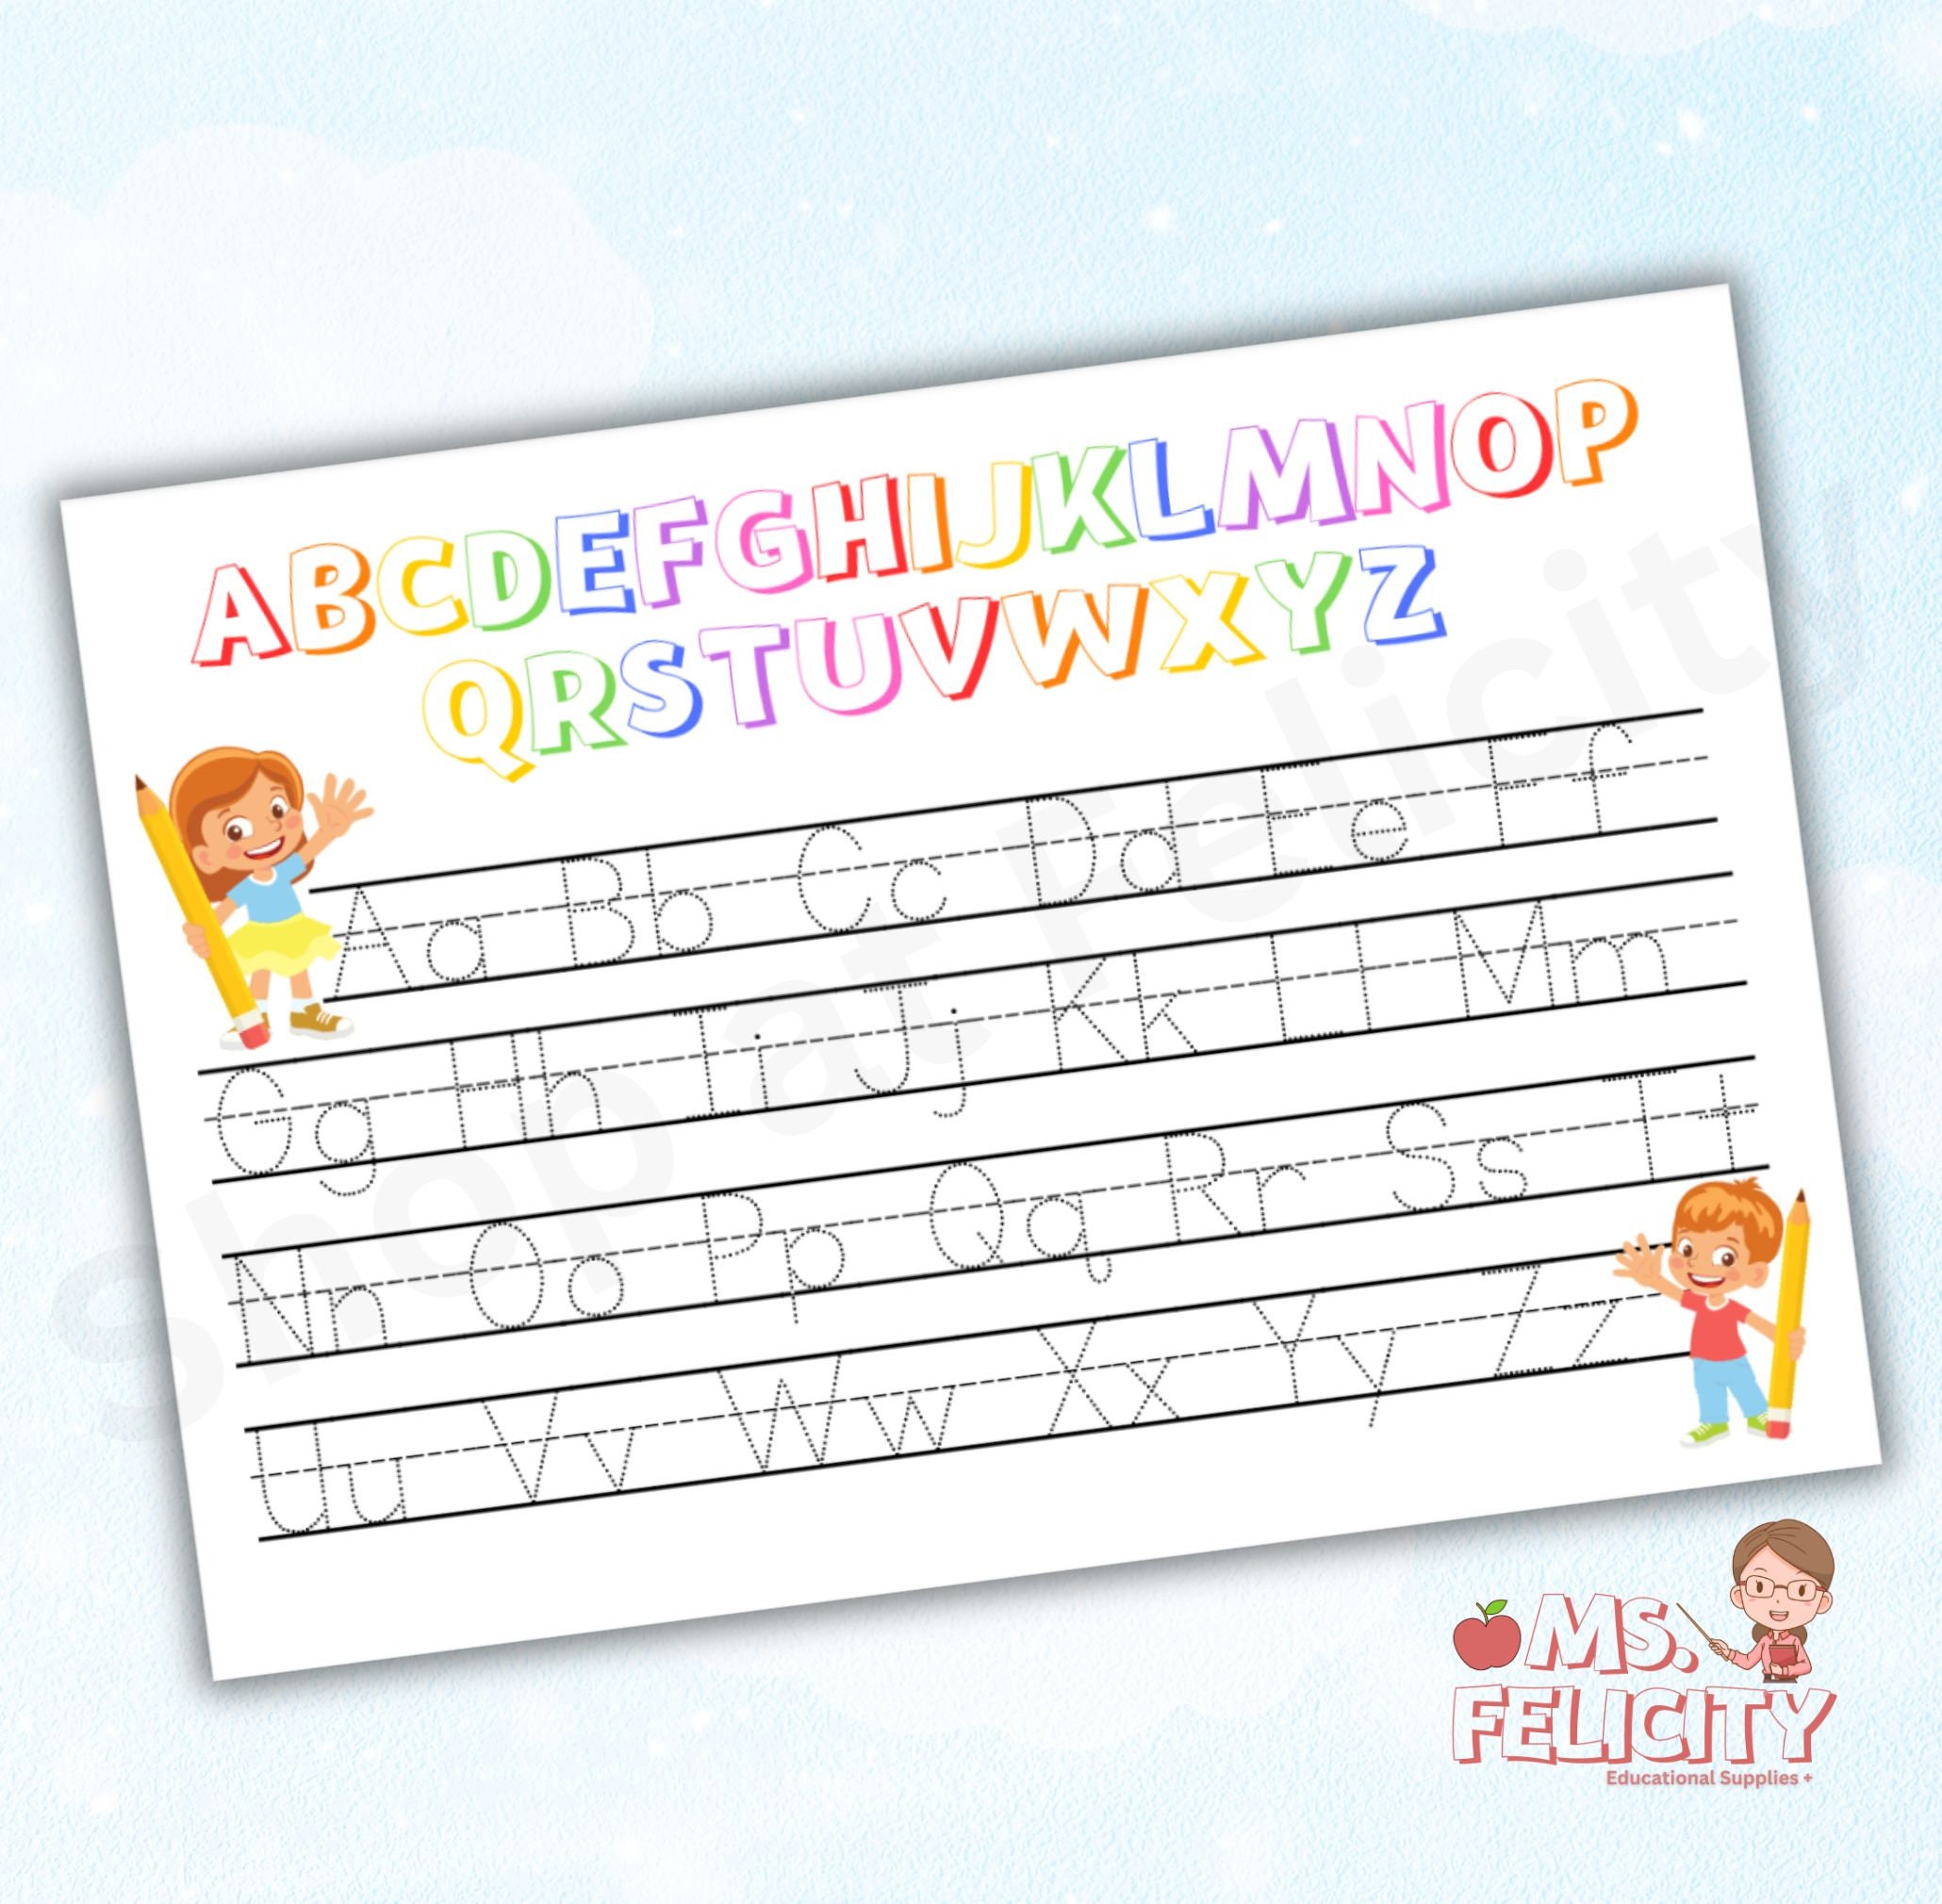 ABCDEFGHIJKLMNOP
QRSTUVWXYZ
Aa Bb Cc Dd Ee Ff
Gg Hh Ii Jj Kk Ll Mm
Nn Oo Pp Qq Rr Ss Tt
Uu Vv Ww Xx Yy Zz
Shop at Felicity
MS.
FELICITY
Educational Supplies +